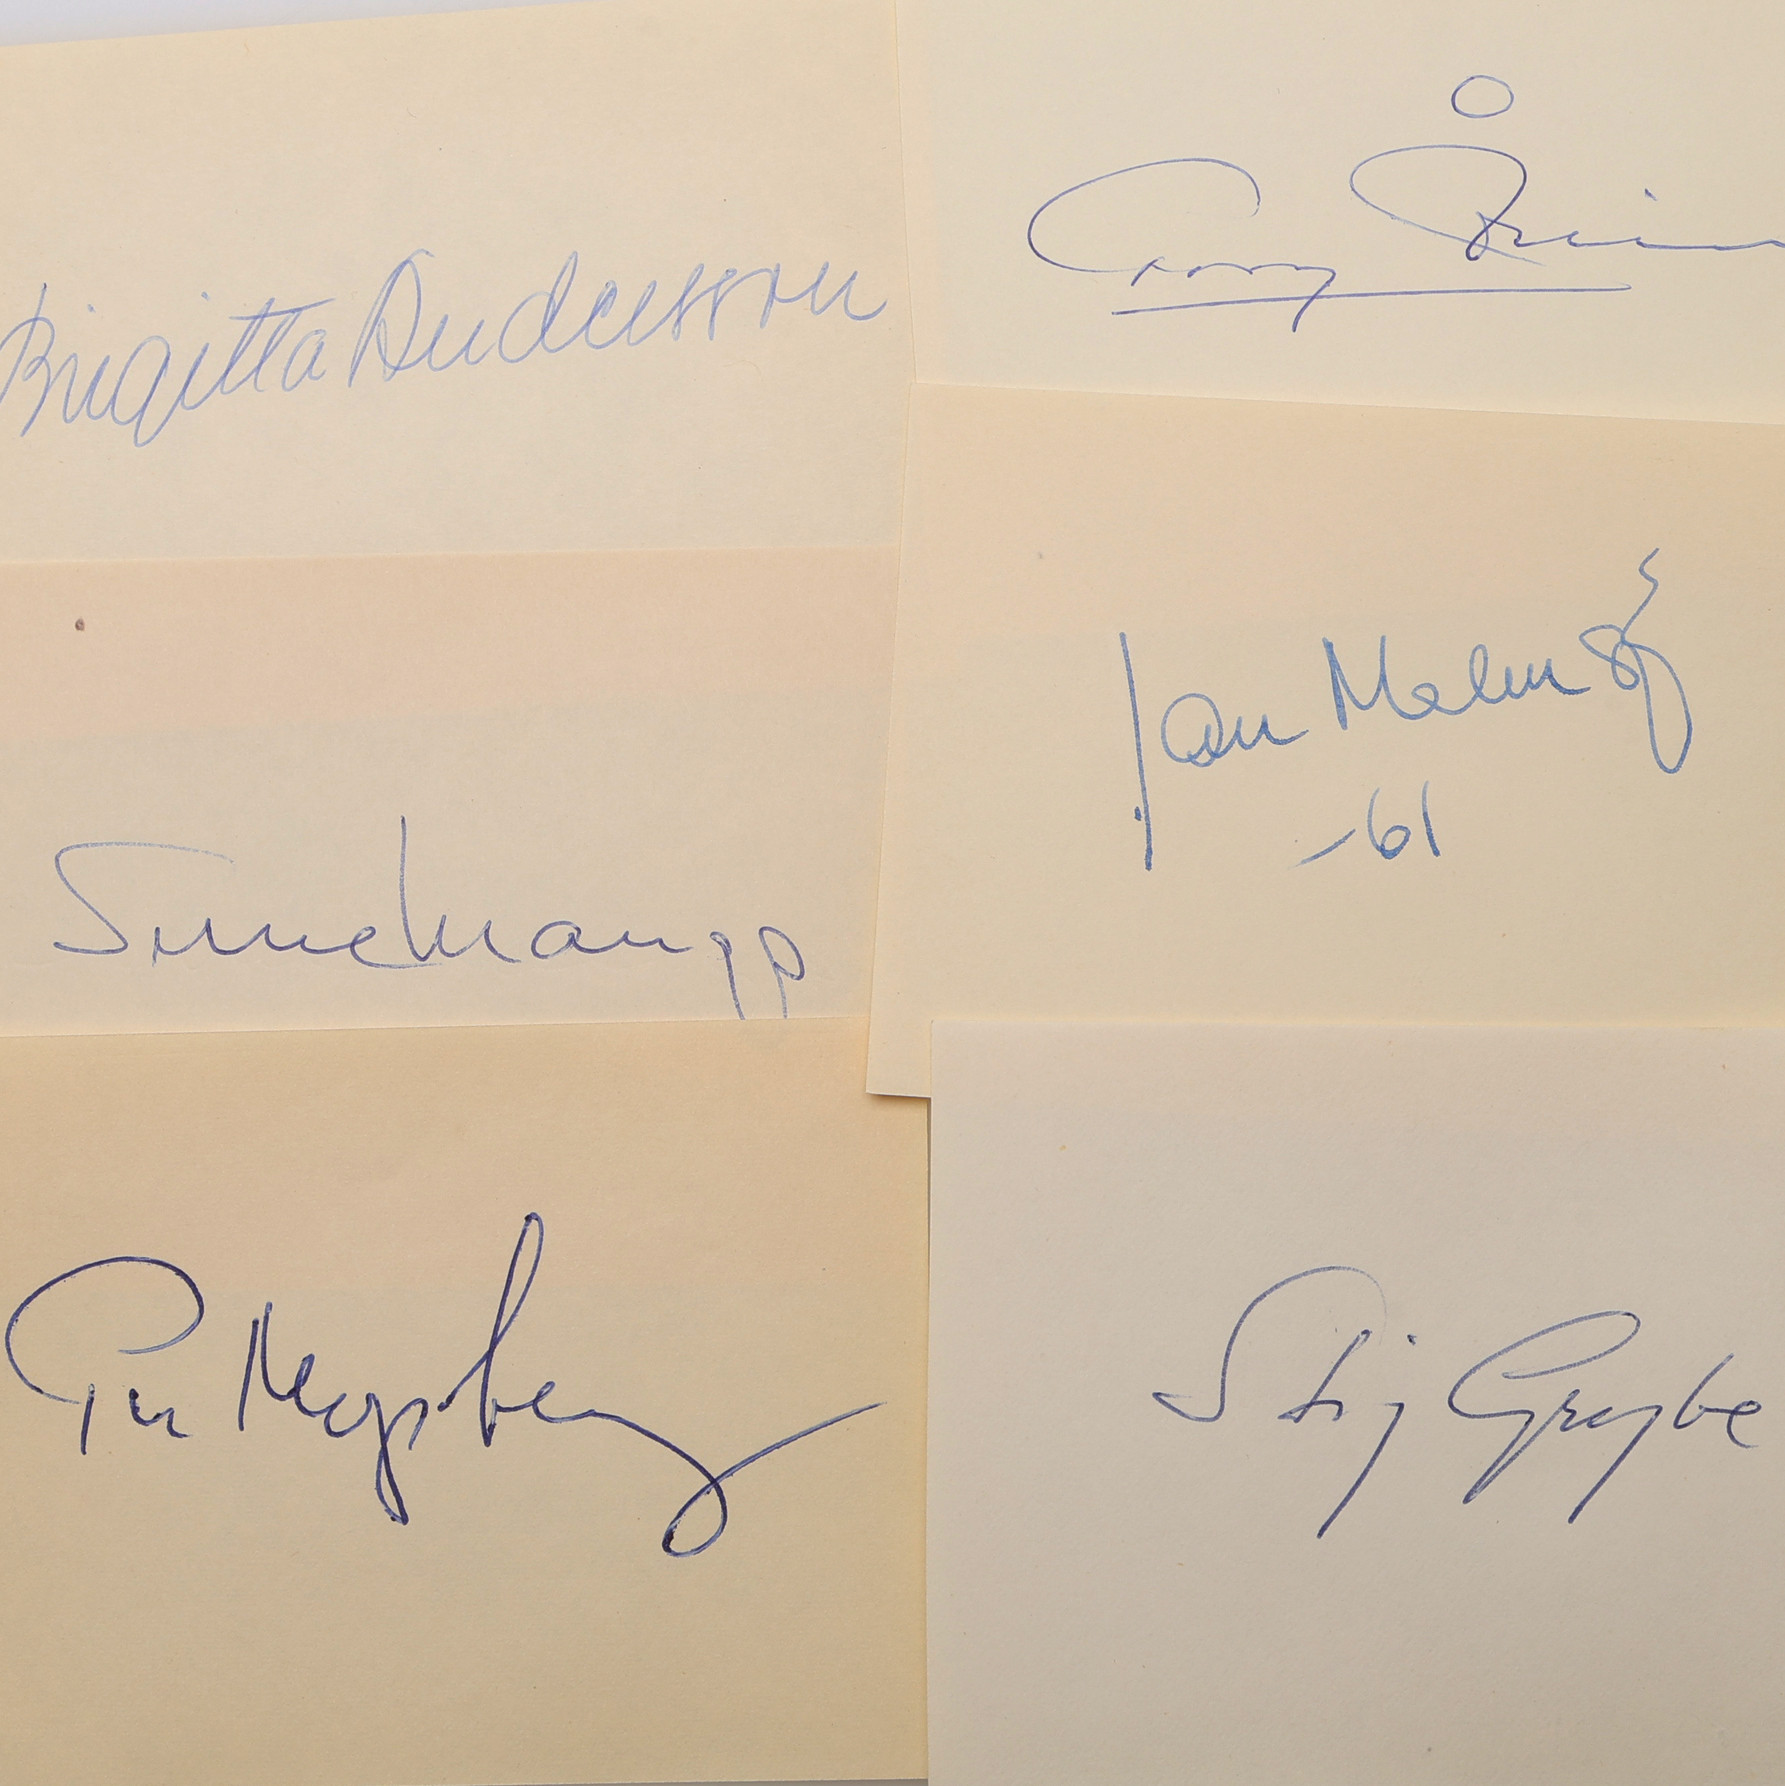 Birgitta Andersson
Conny
Sune Mangs
Jan Malmsjö
-61
Per Myrberg
Stig Grybe